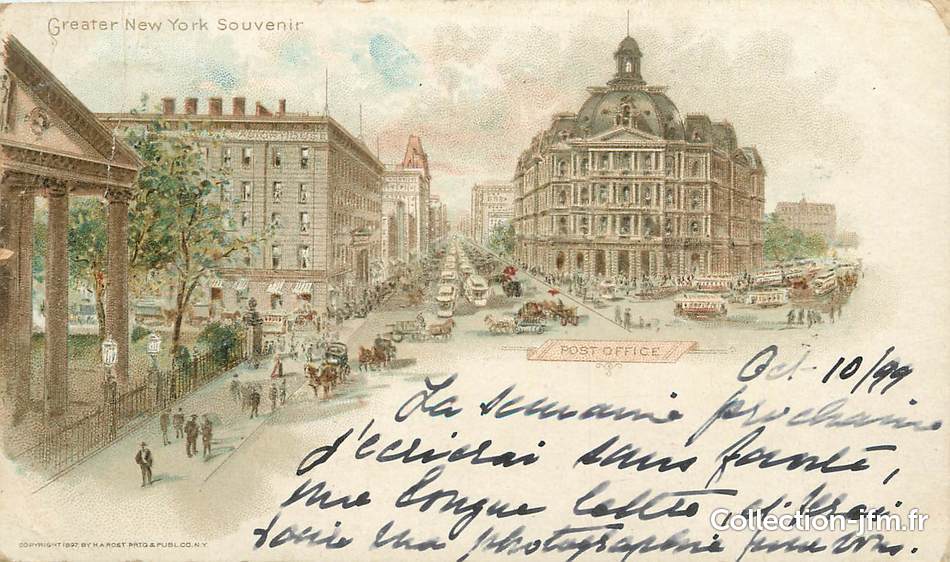 Greater New York Souvenir
POST OFFICE
Oct 10/99
La semaine prochaine
j'écrierai sans faute,
une longue lettre, et j'irai
faire ma photographie pour vous.
Collection-jfm.fr
COPYRIGHT 1897, BY H.A. ROST PRTG & PUBL. CO. N.Y.